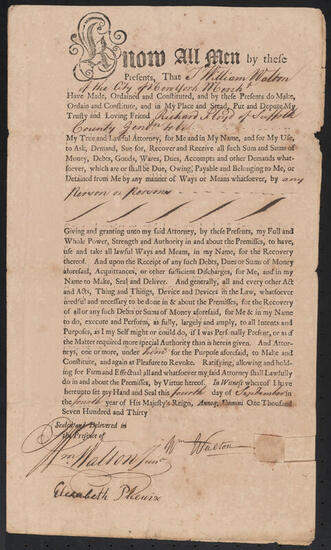 Know All Men by these
Presents, That I William Walton
of the City of New York Merch.t
Have Made, Ordained and Constituted, and by these Presents do Make,
Ordain and Constitute, and in My Place and Stead, Put and Depute My
Trusty and Loving Friend Richard Floyd of Suffolk
County Gent. to be
My True and Lawful Attorney, for Me and in My Name, and for My Use,
to Ask, Demand, Sue for, Recover and Receive all such Sum and Sums of
Money, Debts, Goods, Wares, Dues, Accompts and other Demands what-
soever, which are or shall be Due, Owing, Payable and Belonging to Me, or
Detained from Me by any manner of Ways or Means whatsoever, by any
Person or Persons
Giving and granting unto my said Attorney, by these Presents, my Full and
Whole Power, Strength and Authority in and about the Premisses, to have,
use and take all lawful Ways and Means, in my Name, for the Recovery
thereof. And upon the Receipt of any such Debts, Dues or Sums of Money
aforesaid, Acquittances, or other sufficient Discharges, for Me, and in my
Name to Make, Seal and Deliver. And generally, all and every other Act
and Acts, Thing and Things, Device and Devices in the Law, whatsoever
needful and necessary to be done in & about the Premisses, for the Recovery
of all or any such Debts or Sums of Money aforesaid, for Me & in my Name
to do, execute and Perform, as fully, largely and amply, to all Intents and
Purposes, as I My self might or could do, if I was Personally Present, or as if
the Matter required more special Authority than is herein given. And Attor-
neys, one or more, under him for the Purpose aforesaid, to Make and
Constitute, and again at Pleasure to Revoke. Ratifying, allowing and hold-
ing for Firm and Effectual all and whatsoever my said Attorney shall Lawfully
do in and about the Premisses, by Virtue hereof. In Witness whereof I have
hereunto set my Hand and Seal this fourth day of September in
the fourth year of His Majesty's Reign, Annoq; Domini One Thousand
Seven Hundred and Thirty
Sealed and Delivered in
the Presence of
Wm Walton
Wm Walton Junr.
Elizabeth Phenix